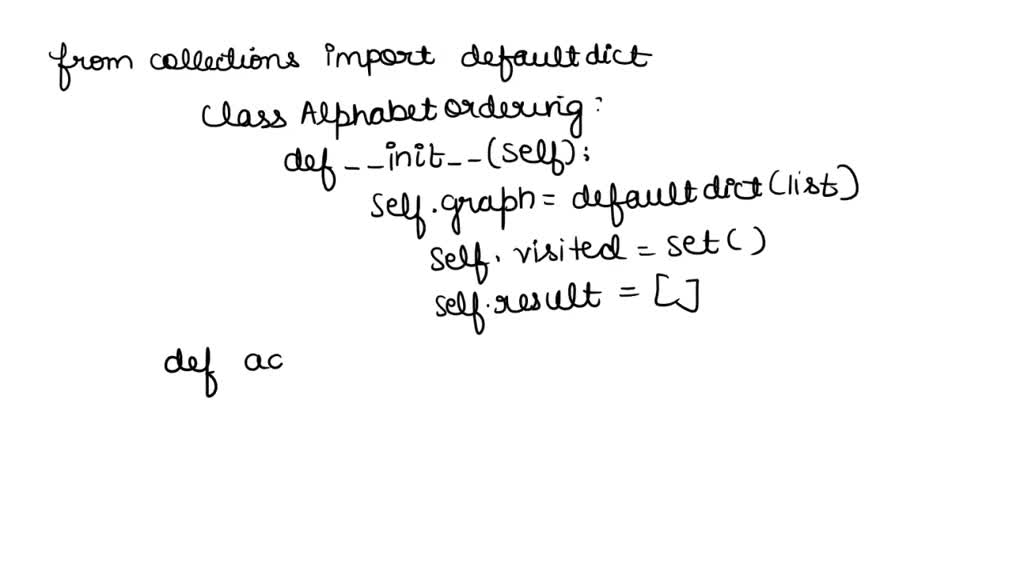 from collections import defaultdict
class Alphabet ordering:
def __init__(self):
self.graph = defaultdict(list)
self.visited = set()
self.result = []
def ac